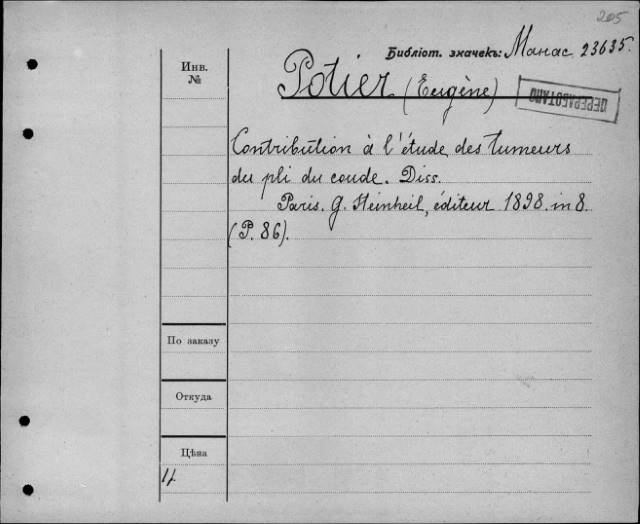 205
Библіот. значекъ: Манас. 23635.
Инв. №
Potier (Eugène)
ПЕРЕРАБОТАНО
Contribution à l'étude des tumeurs
du pli du coude. Diss.
Paris. G. Steinheil, éditeur 1898. in 8.
(P. 86).
По заказу
Откуда
Цѣна